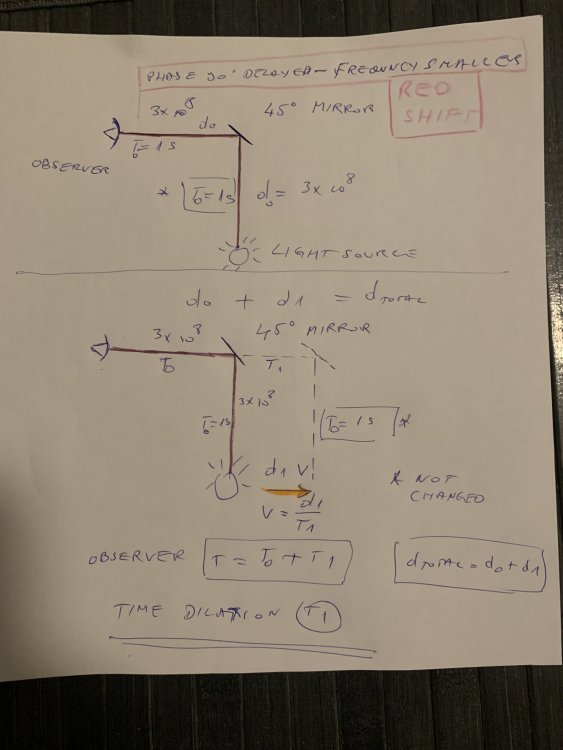 PHASE 90° DELAYED - FREQUNCY SMALLER
RED
SHIFT
3x10^8
45° MIRROR
d0
T0=1s
OBSERVER
* T0=1s
d0= 3x10^8
LIGHT SOURCE
d0 + d1 = dTOTAL
3x10^8
45° MIRROR
T0
T1
3x10^8
T0=1s
T0=1s *
d1 V
* NOT
CHANGED
V = d1/T1
OBSERVER T = T0 + T1
dTOTAL = d0 + d1
TIME DILATION T1